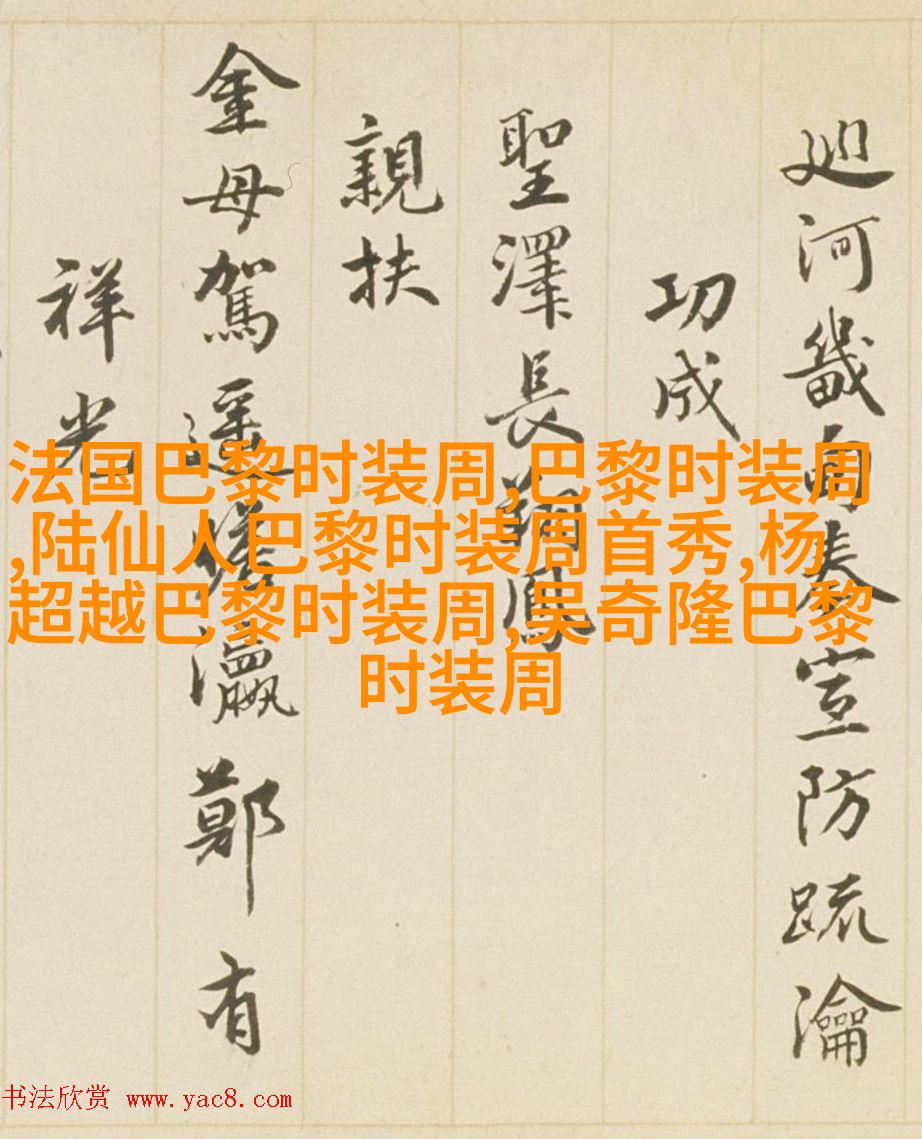 廵河畿面奏宣防疏瀹
功成
聖澤長鳳
親扶
金母駕遥瀛鄭有
祥光
法国巴黎时装周,巴黎时装周
,陆仙人巴黎时装周首秀,杨
超越巴黎时装周,吴奇隆巴黎
时装周
书法欣赏 www.yac8.com